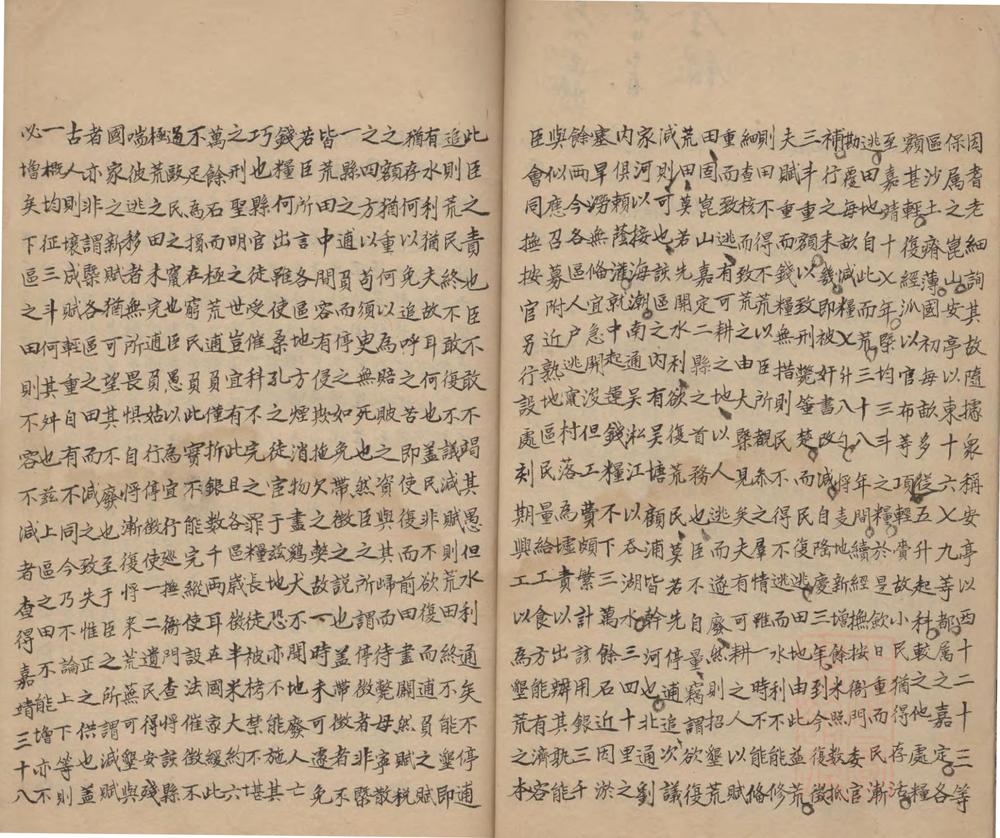 因耆老細詢其故隨據衆稱安亭以西十二十三等
保屬之崑山安亭以東十六ㄨ九等都屬之嘉定各
區沙土瘠薄國初每畝多五升起科較之他處糧
額甚輕復經派年以官布等項從輕賫故小民猶得存活
至嘉靖十ㄨ年槩均三斗之糧於是歛日重而民漸
逃田地自此而荒矣三八年間續經撫按衙門委官
勘覆每畝減糧被奸書改將自支地新增餘米照數抵
補行之未幾即刑斃箠楚而減民隂慶三年到今復徵
三斗重額以致無措則不得復逃田地由此益荒
夫賦重而錢糧無由所觀忝之羣情而水利不修
則田不得不荒以臣大民見矣夫遂雖一時不能條
細查核而致荒之地槩人逃而不可耕之人以賦
重而致逃有可耕之以務民臣若廢然則招墾荒
田固崑山嘉定二縣之首荒也莫自量竊謂欲復
荒田莫若先開水利欲復塘民浦皆先停逋追次議
減則可也該區之內有吳江顧吞湖幹河也北通劉
家河以接海潮南通吳淞糧以下三水三四十里之
內俱賴蔭溝就中起運錢工不頗繁萬餘石近因淤
塞旱澇無備宜急開沒但落費墟貴計該用銀三千
餘兩今各區人戶逃竄村民為給工以出辦其孰能
與似應召募附近熟地區民量興工食方能有濟容
臣會同撫按官另行設處刻期興工以為墾荒之本
此臣之責也臣不敢不竭其愚但水利通矣不停逋
追則荒民終不敢復議減賦則荒田終不能墾即
有水利猶夫故耳何也蓋民非不欲復而逋員之賦
猶存何以免追呼之苦即使復而前田盡闢然寧稅
之額猶重何以為賠敗之資與其歸而待斃毋非散
之四方以苟須更無死也然臣之所謂停徵者不槩
一縣之逋員而停之如免帶徵之說也蓋帶徵者不免
皆荒田中間容有侵欺拖欠盡獘故一時未可遽
若臣所言各區地方煙消物于鷄犬不聞地廢人亡
錢糧何出雖使桑孔之徒官罪玆地恐亦不能施其
巧也縣官徒催科不完且各糧長徒被栲禁不堪
之刑聖明之世豈宜有此銀數區歲徵半米大約六
萬餘石而極荒逋員僅折不能千兩耳在國家緩此
不足為損在窮民以此實宜行完縱使設法催徵不
過致民之竄也臣員此為停徵廵撫衙門查將該縣
極荒之田未完逋愚姑行將漸使將二遺民得安殘
喘彼逃移者無所畏懼自廢也復于來荒蕪可墾與
國家之新賦猶可望其而減之致失臣之所謂減賦
者亦非謂槩各區之田不同今至乃惟正之供也蓋
古人則壞成賦輕重自有玆上區之不論上下等則
一槩均征三斗其也不減同者田不能增亦不
必增矣下區之田則不升容不減者查得嘉靖三十八